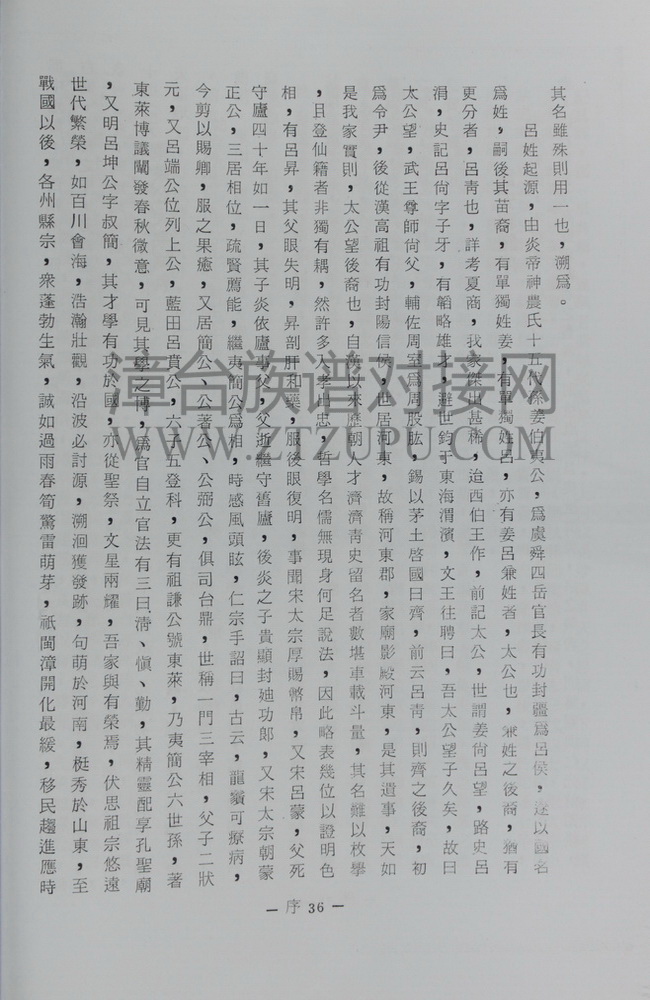 其名雖殊則用一也，溯爲。
呂姓起源，由炎帝神農氏十五代孫姜伯夷公，爲虞舜四岳官長有功封疆爲呂侯，遂以國名
爲姓，嗣後其苗裔，有單獨姓姜，有單獨姓呂，亦有姜呂兼姓者，太公也，兼姓之後裔，猶有
更分者，呂青也，詳考夏商，我家傑出甚稀，迨西伯王作，前記太公，世謂姜尚呂望，路史呂
涓，史記呂尙字子牙，有韜略雄才，避世釣于東海渭濱，文王往聘曰，吾太公望子久矣，故曰
太公望，武王尊師尙父，輔佐周室爲周股肱，錫以茅土啓國曰齊，前云呂青，則齊之後裔，初
爲令尹，後從漢高祖有功封陽信侯，世居河東，故稱河東郡，家廟影殿河東，是其遺事，天如
是我家實則，太公望後裔也，自漢以來歷朝人才濟濟青史留名者數堪車載斗量，其名難以枚擧
，且登仙籍者非獨有耦，然許多入孝出忠，哲學名儒無現身何足說法，因此略表幾位以證明色
相，有呂昇，其父眼失明，昇剖肝和藥，服後眼復明，事聞宋太宗厚賜幣帛，又宋呂蒙，父死
守廬四十年如一日，其子炎依廬事父，父逝繼守舊廬，後炎之子貴顯封廸功郎，又宋太宗朝蒙
正公，三居相位，疏賢薦能，繼夷簡公爲相，時感風頭眩，仁宗手詔曰，古云，龍鬚可療病，
今剪以賜卿，服之果癒，又居簡公、公著公、公弼公，俱司台鼎，世稱一門三宰相，父子二狀
元，又呂端公位列上公，藍田呂賁公，六子五登科，更有祖謙公號東萊，乃夷簡公六世孫，著
東萊博議闡發春秋徵意，可見其學之博，爲官自立官法有三曰淸、愼、勤，其精靈配享孔聖廟
，又明呂坤公字叔簡，其才學有功於國，亦從聖祭，文星兩耀，吾家與有榮焉，伏思祖宗悠遠
世代繁榮，如百川會海，浩瀚壯觀，沿波必討源，溯洄獲發跡，句萌於河南，梃秀於山東，至
戰國以後，各州縣宗，衆蓬勃生氣，誠如過雨春筍驚雷萌芽，祇閩漳開化最緩，移民趨進應時
— 序 36 —
漳台族谱对接网
WWW.ZTZUPU.COM